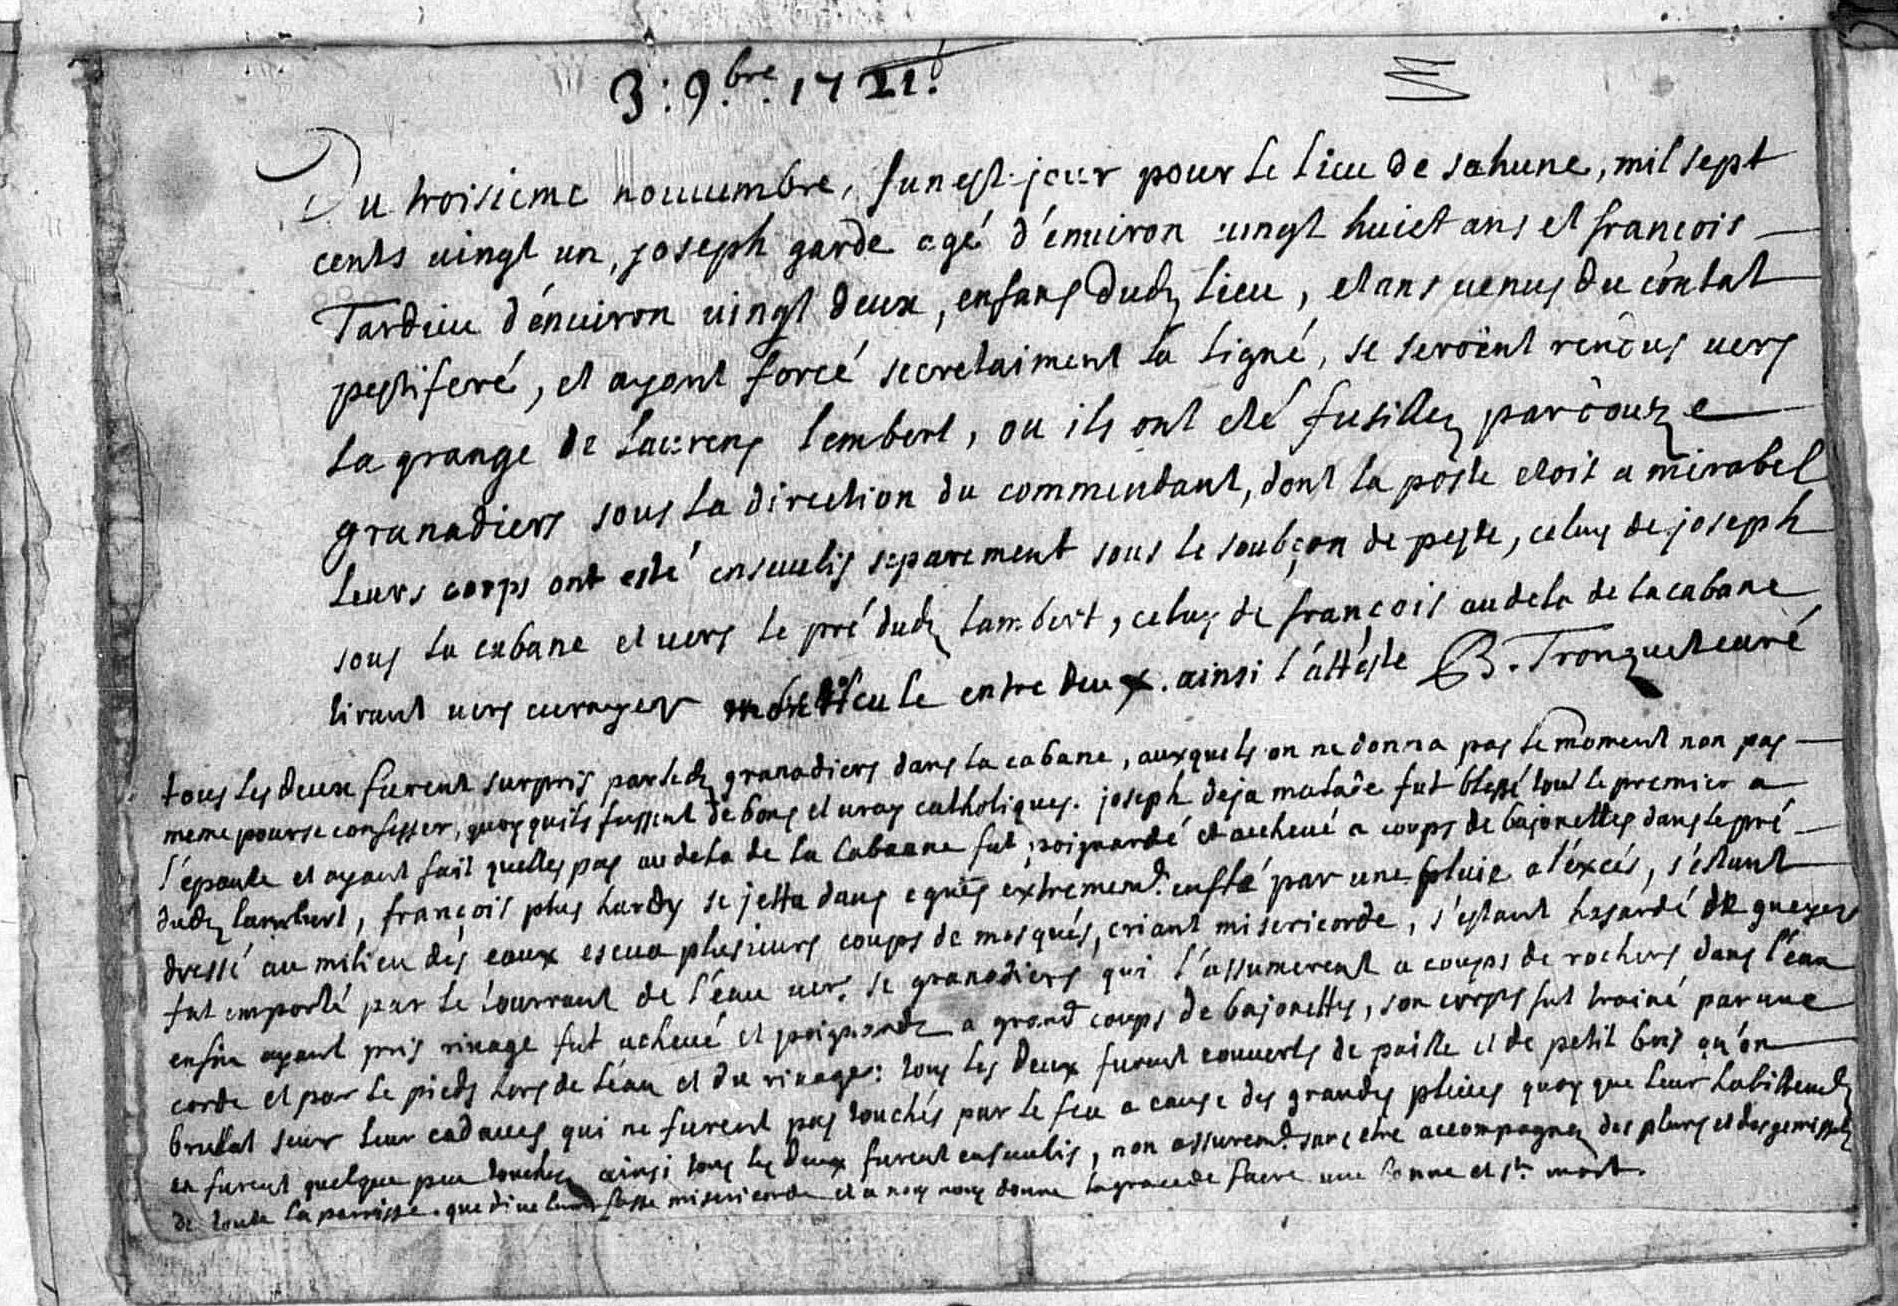 3: 9.bre 1721.
Du troisieme nouuembre, funest jour pour le lieu de sahune, mil sept
cents uingt un, joseph garde agé d'énuiron uingt huict ans et françois
Tardieu d'énuiron uingt deux, enfans dudt lieu, etans uenus du contat
pestiferé, et ayant forcé secretaiment la ligné, se seroënt rendus uers
la grange de laurens lembert, ou ils ont eté fusillez par douze
granadiers sous la direction du commendant, dont la poste etoit a mirabel
leurs corps ont esté enseuelis separement sous le soubçon de peste, celuy de joseph
sous la cabane et uers le pré dudt lambert, celuy de françois audela de la cabane
tirant uers entre deux. ainsi l'átteste B. Tronquet curé
tous les deux furent surpris par lesdt granadiers dans la cabane, auxquels on ne donna pas le moment non pas
meme pour se confesser, quoy quils fussent de bons et uray catholiques. joseph deja malade fut blessé tout le premier a
l'épaule et ayant fait quelles pas audela de la cabaane fut poignardé et acheué a coups de bajonettes dans le pré
dudt lambert, françois plus hardy se jetta dans eques extremem.t enflé par une pluie a l'éxcés, s'éstant
dressé au milieu des eaux esçua plusieurs coups de mosqués, criant misericorde, s'estant hasardé de gueyer
fut emporté par le courrant de l'éau uer. se granadiers qui l'assumerent a coups de rochers dans l'éau
enfin ayant pris riuage fut acheué et poignardé a grand coups de bajonettes, son corps fut trainé par une
corde et par le pieds hors de l'éau et du riuage: tous les deux furent couuerts de paille et de petit bois qu'ón
brullat seur leur cadaues qui ne furent pas touchés par le feu a cause des grandes pluies quoy que leur habillemts
en furent quelque peu touchez ainsi tous les deux furent enseuelis, non assurem.t sans etre accompagnez des plurs et des gemissts
de toute la parroisse. que dieu leur fasse misericorde et a nous nous donne la grace de faire une bonne et ste mort.